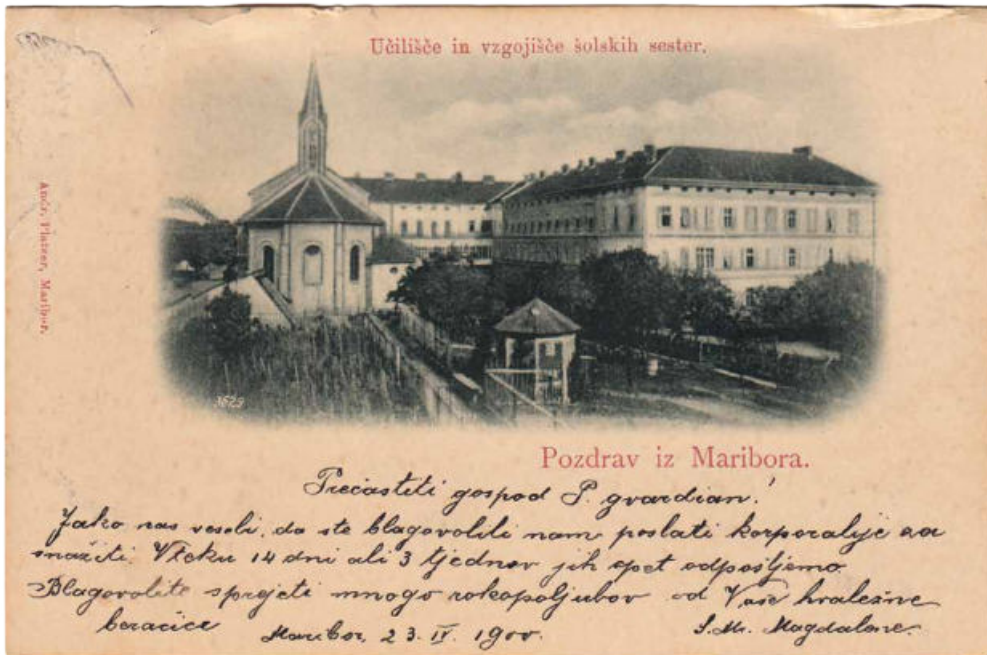 Učilišče in vzgojišče šolskih sester.
Andr. Platzer, Maribor.
3629
Pozdrav iz Maribora.
Prečastiti gospod P. gvardian!
Jako nas veseli, da ste blagovolili nam poslati korporalije za
snažiti. Vteku 14 dni ali 3 tjednov jih spet odpošljemo.
Blagovolite sprejeti mnogo rokopoljubov od Vaše hvaležne
beračice Maribor, 23. IV. 1900. S. M. Magdalene.